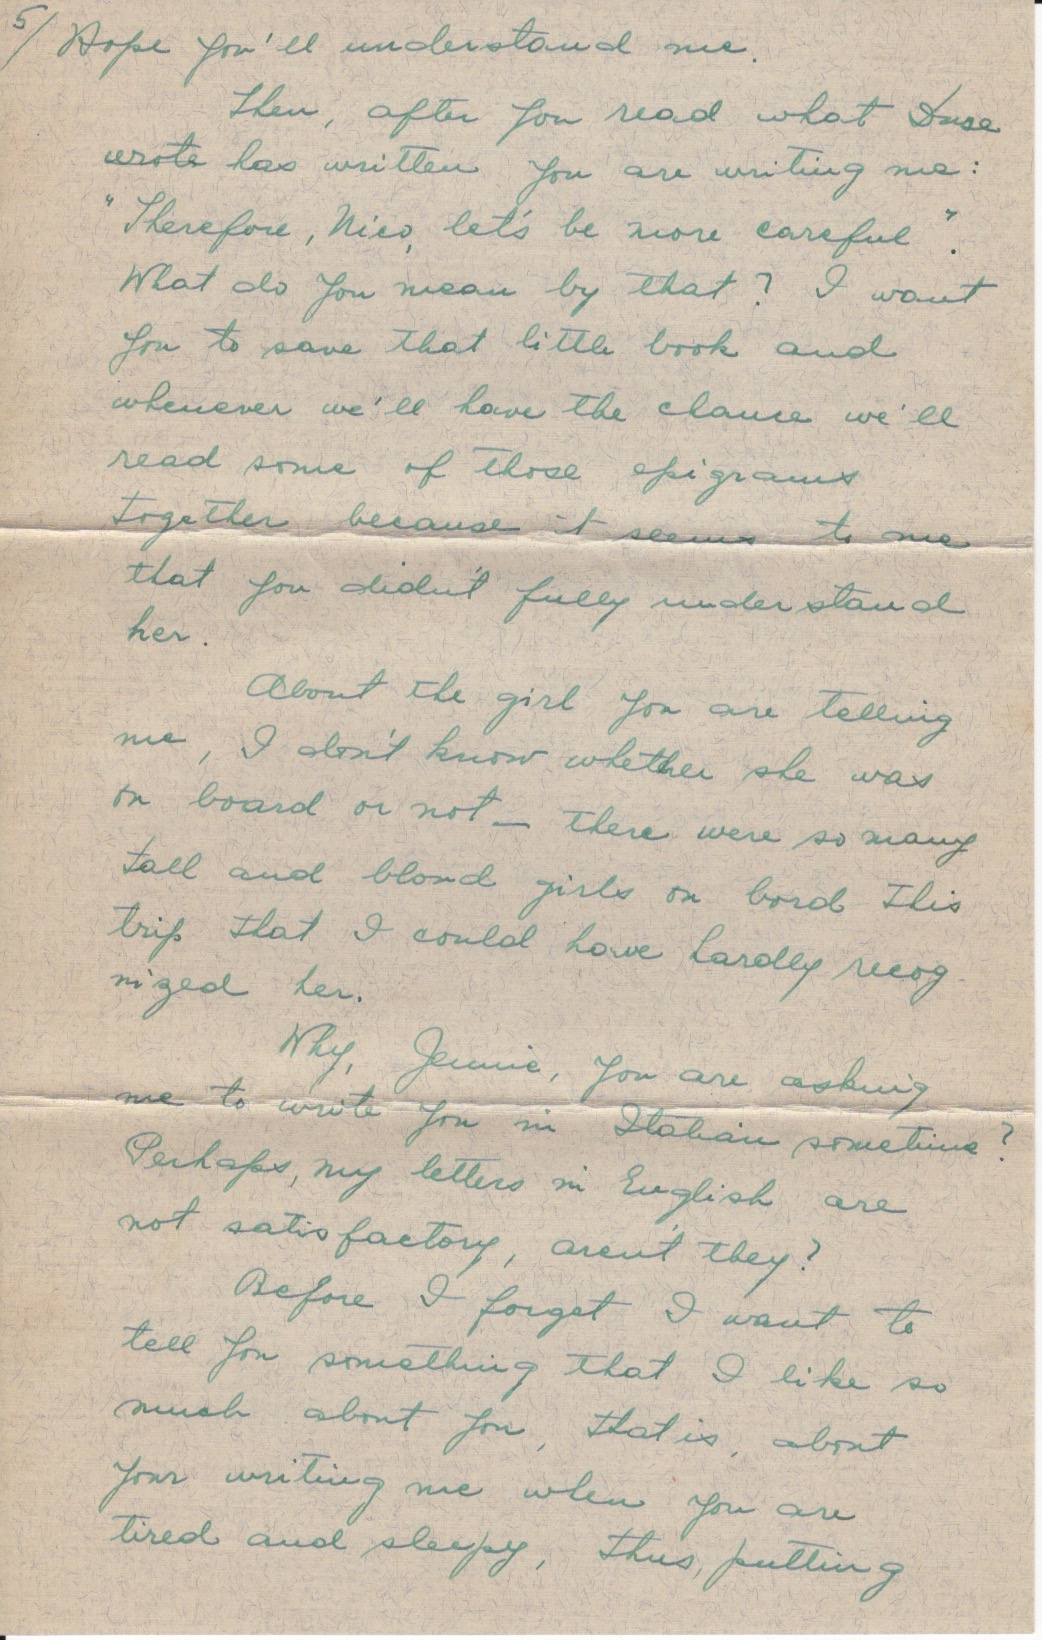 5/ Hope you'll understand me.
Then, after you read what Duse
wrote has written you are writing me:
"Therefore, Nico, let's be more careful".
What do you mean by that? I want
you to save that little book and
whenever we'll have the chance we'll
read some of those epigrams
together because it seems to me
that you didn't fully understand
her.
About the girl you are telling
me, I don't know whether she was
on board or not _ there were so many
tall and blond girls on bord this
trip that I could have hardly recog
nized her.
Why, Jennie, you are asking
me to write you in Italian sometime?
Perhaps, my letters in English are
not satisfactory, aren't they?
Before I forget I want to
tell you something that I like so
much about you, that is, about
your writing me when you are
tired and sleepy, thus, putting